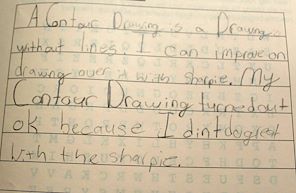 A Contour Drawing is a Drawing
without lines I can improve on
drawing over it with sharpie. My
Contour Drawing turned out
ok because I dint do gret
With the sharpie.